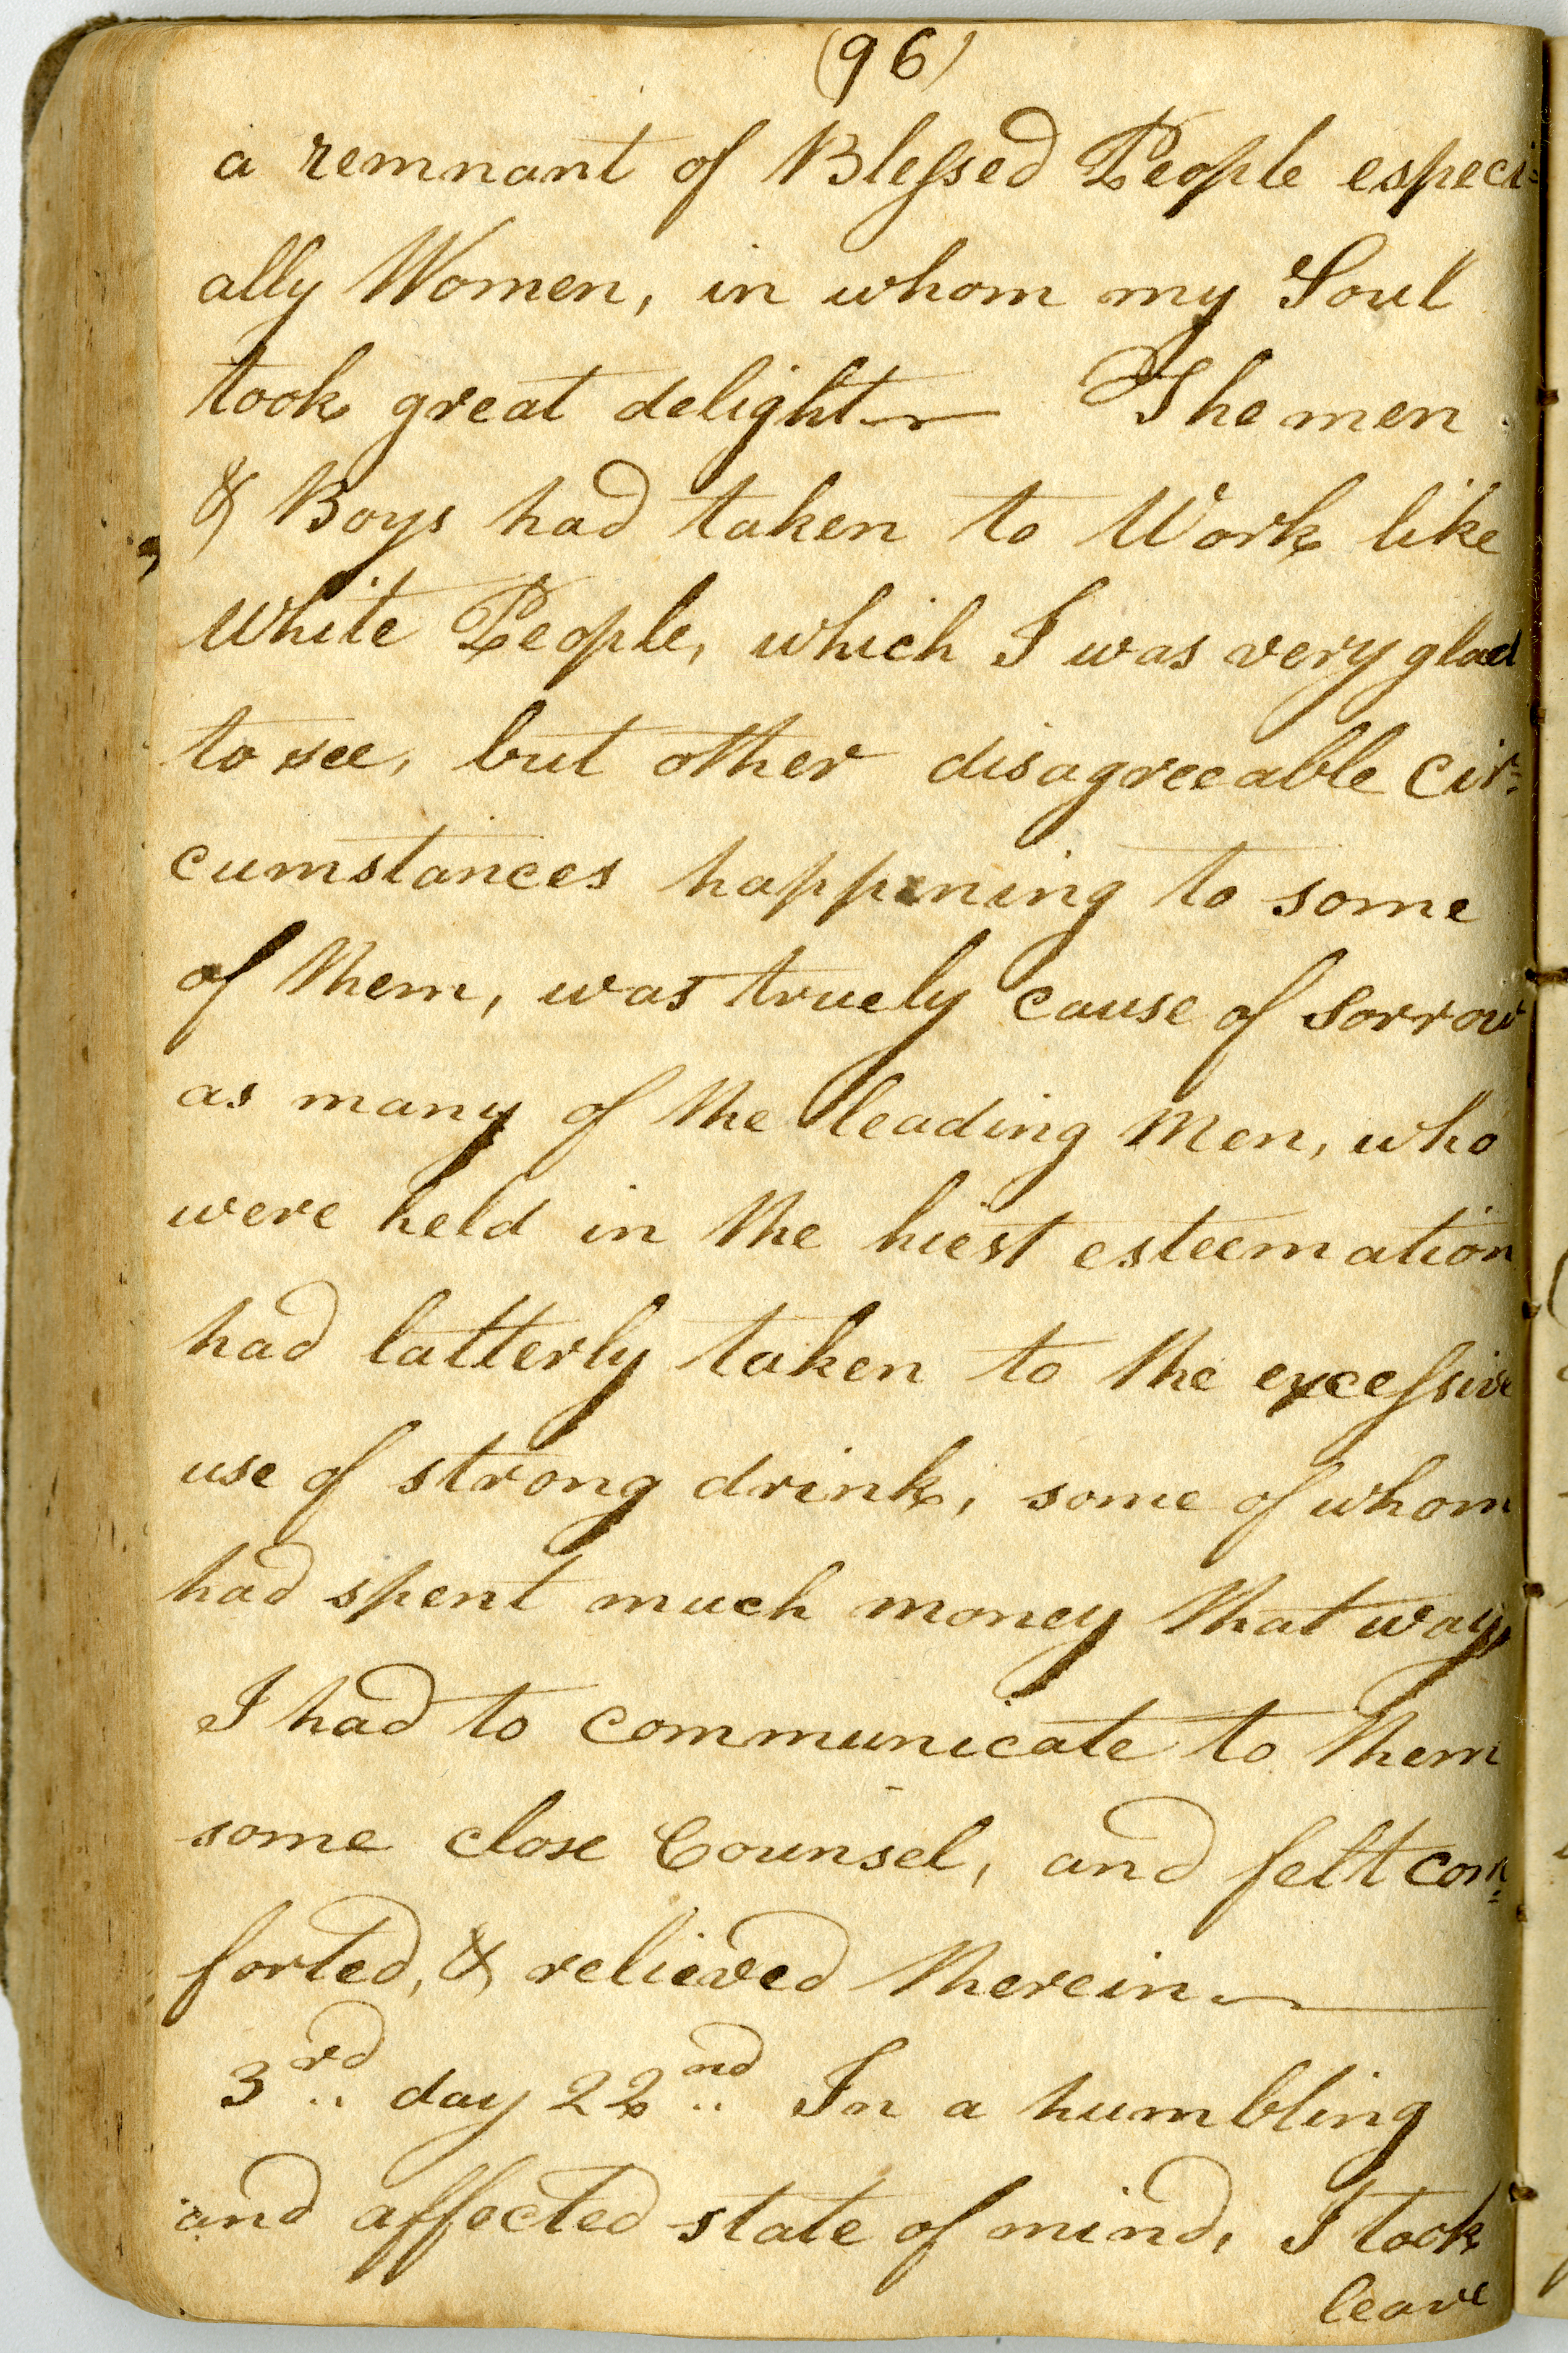 (96)
a remnant of Blessed People especi=
ally Women, in whom my Soul
took great delight — The men
& Boys had taken to Work like
White People, which I was very glad
to see, but other disagreeable cir=
cumstances happening to some
of them, was truely cause of sorrow
as many of the leading Men, who
were held in the hiest esteemation
had latterly taken to the excessive
use of strong drink, some of whom
had spent much money that way,
I had to communicate to them
some close Counsel, and felt com=
forted, & relieved therein —
3rd.. day 22nd.. In a humbling
and affected state of mind, I took
leave